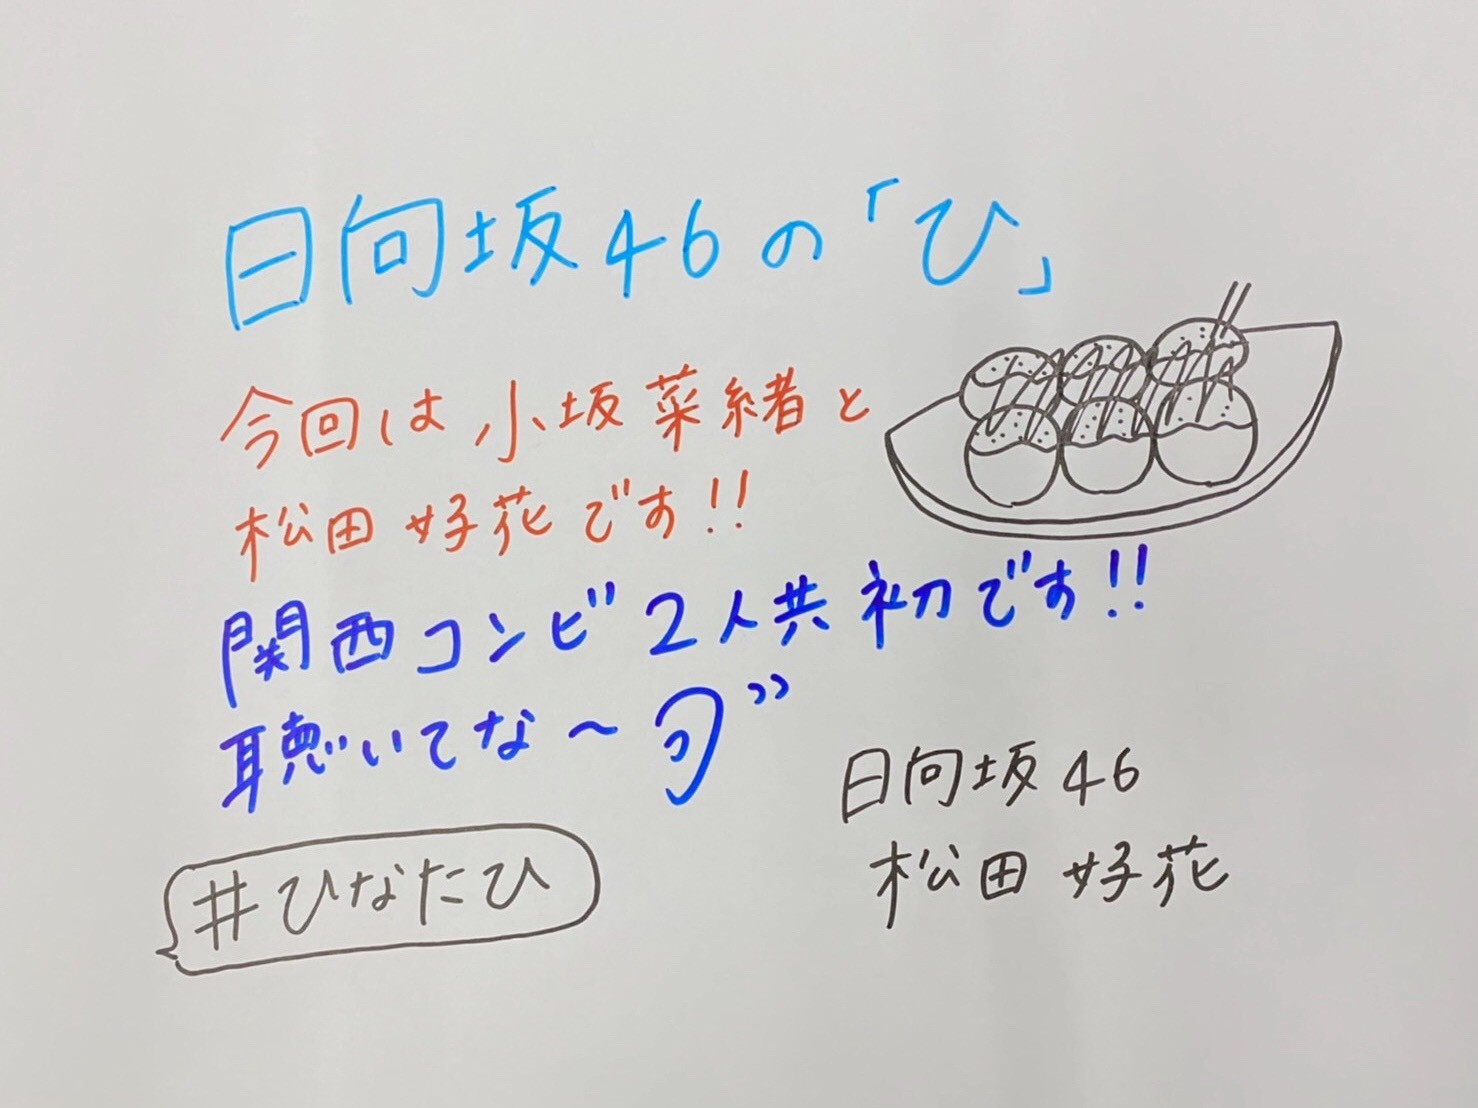 日向坂46の「ひ」
今回は小坂菜緒と
松田好花です!!
関西コンビ2人共初です!!
聴いてな〜
#ひなたひ
日向坂46
松田好花